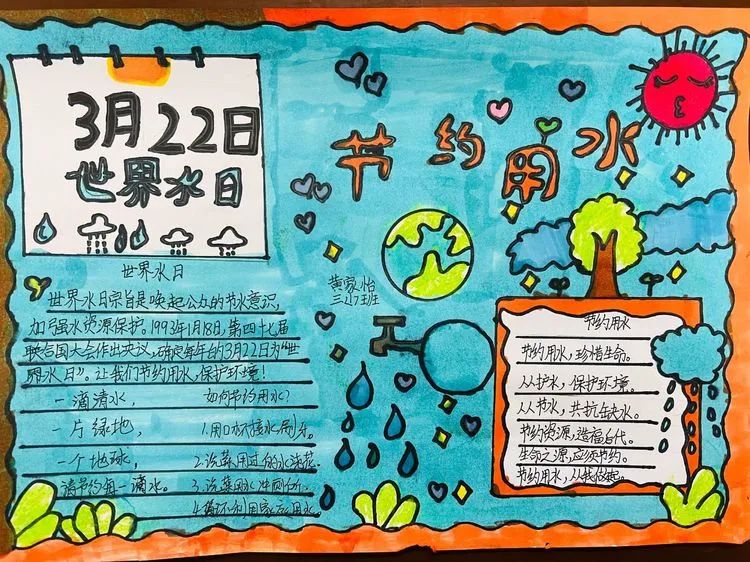 3月22日
世界水日
节约用水
世界水日
世界水日宗旨是唤起公众的节水意识,
加强水资源保护,1993年1月18日,第四十七届
联合国大会作出决议,确定每年的3月22日为“世
界水日”。让我们节约用水,保护环境!
一滴清水,
一片绿地,
一个地球,
请节约每一滴水。
如何节约用水?
1.用口杯接水刷牙。
2.洗菜用过的水浇花。
3.洗菜用水冲厕所。
4.循环利用家庭用水。
黄家怡
节约用水
节约用水,珍惜生命。
从护水,保护环境。
从节水,共抗缺水。
节约资源,造福后代。
生命之源,应须节约。
节约用水,从我做起。